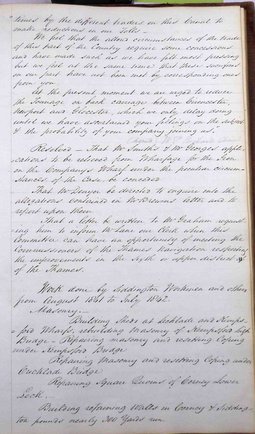 times by the different traders on this Canal to
make reductions in our Tolls.
We feel that the altered circumstances of the trade
of this part of the Country require some concessions
and have made such as we have felt most pressing
but we felt at the same time that these
on our part have not been met by corresponding ones
from you.
At the present moment we are urged to reduce
the Tonnage on back carriage between Cirencester,
Newport and Gloucester, which we only delay doing
until we have ascertained your feelings on the subject
& the probability of your company joining us."
Resolved - That Mr. Smith's & Mr. George's appli-
cations to be relieved from Wharfage for the Iron
on the Company's Wharf under the peculiar circum-
stances of the Case, be conceded
That Mr. be directed to enquire into the
allegations contained in Mr. letter and to
report upon them
That a letter be written to Mr. Graham request-
ing him to inform Mr. Lane our Clerk when this
Committee can have an opportunity of meeting the
Commissioners of the Thames Navigation respecting
the improvements in the or upper district
of the Thames.
Work done by Siddington Workmen and others
from August 1841 to July 1842.
Masonry.
Building Sheds at Lechlade and Kemps-
ford Wharfs, rebuilding Masonry of Kempsford high
Bridge - Repairing masonry and resetting Coping
under Kempsford Bridge
Repairing Masonry and resetting Coping under
Cricklade Bridge
Repairing Square Quoins of Cerney Lower
Lock
Building retaining Walls in Cerney & Sidding-
ton pounds nearly 300 Yards run